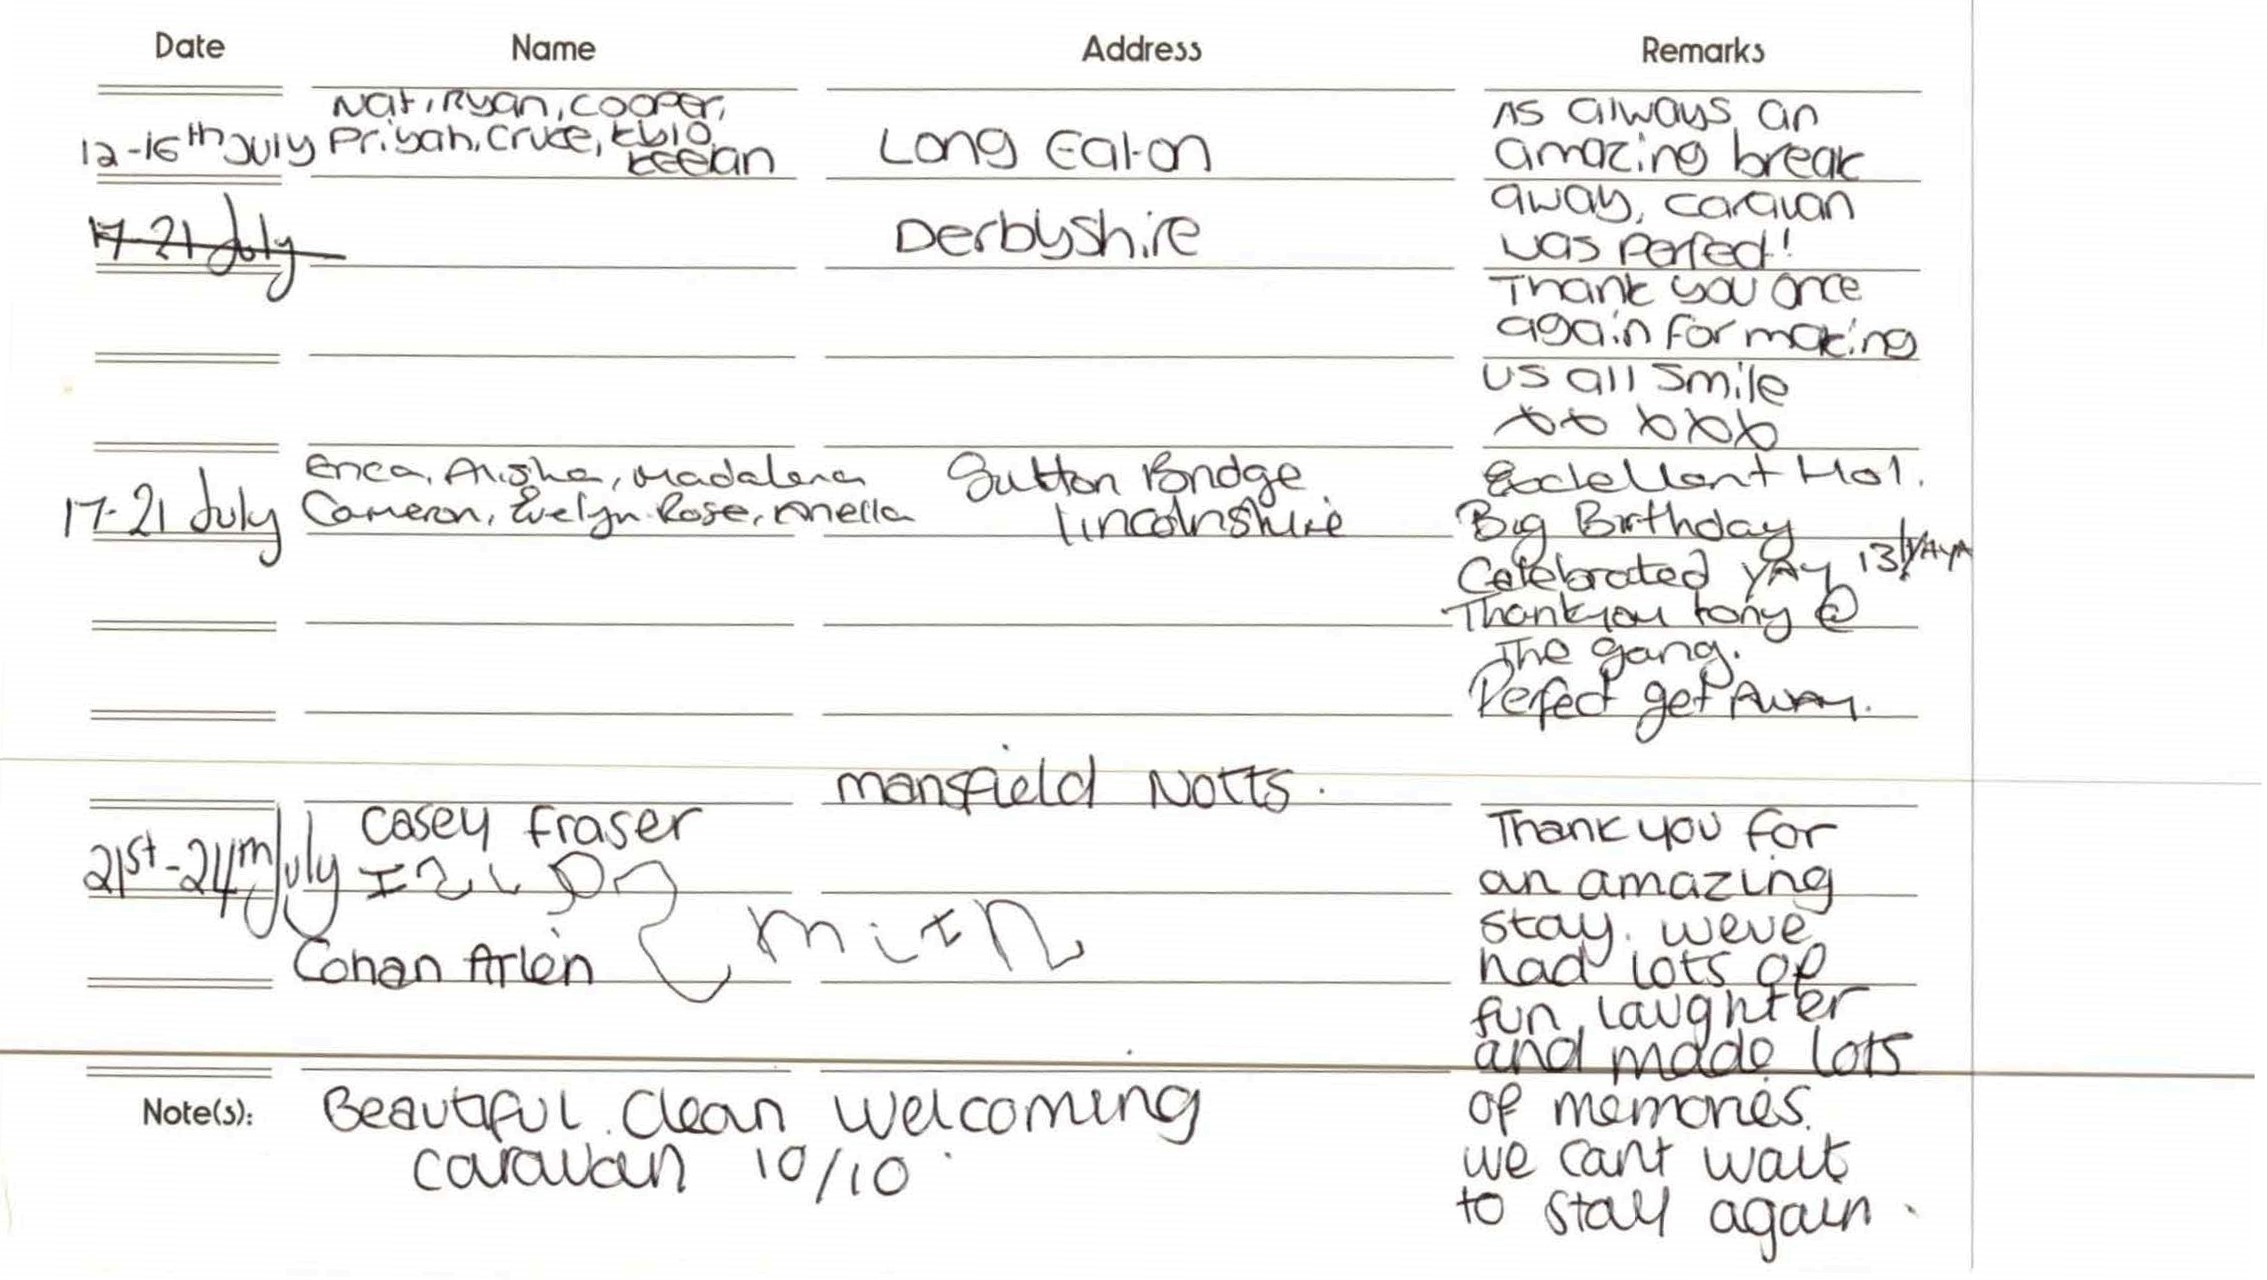 Date Name Address Remarks
12-16th July Nat, Ryan, Cooper,
Priyah, Cruze, Keelan
Long Eaton
Derbyshire
As always an
amazing break
away, caravan
was perfect!
Thank you once
again for making
us all smile
xx xxx
17-21 July
17-21 July Erica, Aisha, Madalena
Cameron, Evelyn-Rose, Anella
Sutton Bridge
lincolnshire
Excellent Hol.
Big Birthday
Celebrated YAY 13
Thankyou tony @
The gang.
Perfect get Away.
21st-24th July
Casey Fraser
Cohan Arlen
mansfield Notts.
Thank you for
an amazing
stay. weve
had lots of
fun, laughter
and made lots
of memories.
we cant wait
to stay again.
Note(s): Beautiful. Clean welcoming
caravan 10/10.